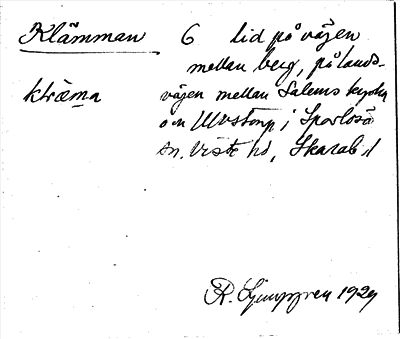 Klämman 6 lid på vägen
mellan berg, på lands-
klræma vägen mellan Salems kyrka
och Ulvstorp i Sparlösa
sn. Viste hd, Skarab. l
R. Ljunggren 1929